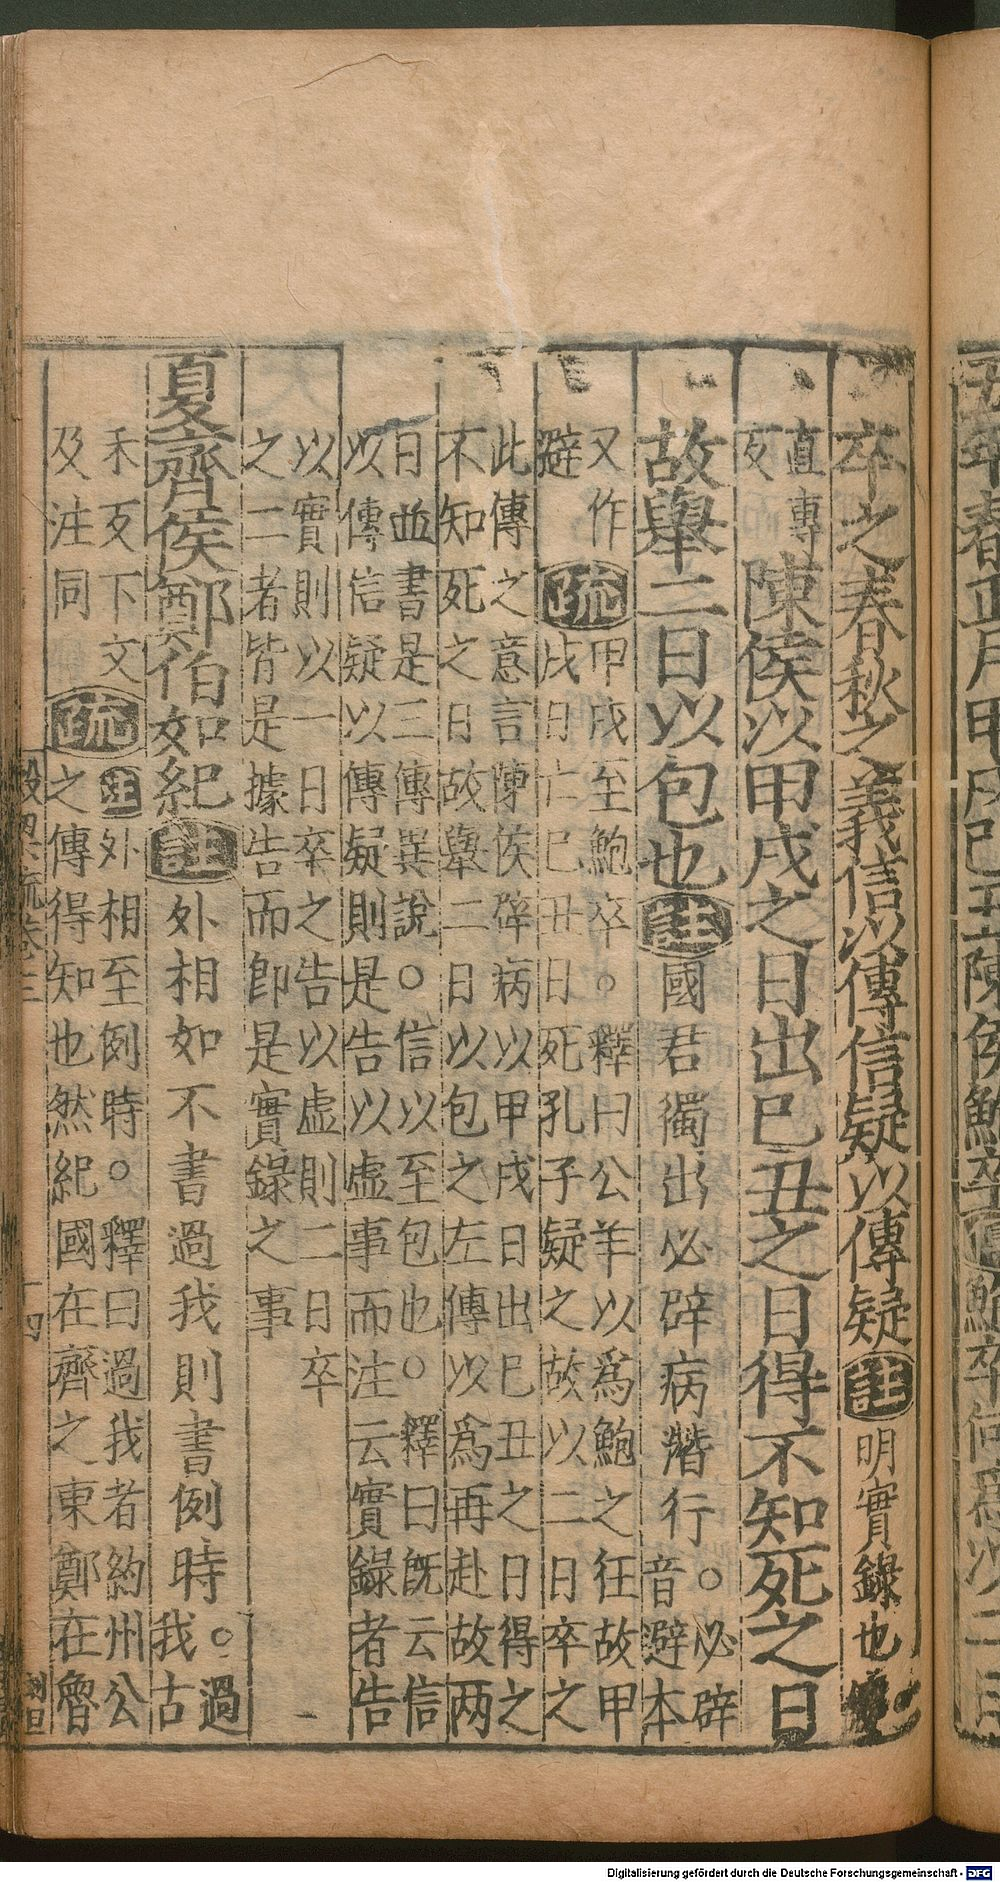 五年春正月甲戌己丑陳侯鮑卒傳鮑卒何爲以二日
卒之春秋之義信以傳信疑以傳疑註明實錄也
直專
反
陳侯以甲戌之日出己丑之日得不知死之日
故舉二日以包也註國君獨出必辟病潛行。必辟
音避本
又作
避
疏
甲戌至鮑卒。釋曰公羊以爲鮑之狂故甲
戌日亡己丑日死孔子疑之故以二日卒之
此傳之意言陳侯辟病以甲戌日出己丑之日得之
不知死之日故舉二日以包之左傳以爲再赴故两
日並書是三傳異說。信以至包也。釋曰旣云信
以傳信疑以傳疑則是告以虛事而注云實錄者告
以實則以一日卒之告以虛則二日卒
之二者皆是據告而即是實錄之事
夏齊侯鄭伯如紀註外相如不書過我則書例時。過
我古
禾反下文
及注同
疏
注外相至例時。釋曰過我者約州公
之傳得知也然紀國在齊之東鄭在魯
穀梁疏卷三
十四
Digitalisierung gefördert durch die Deutsche Forschungsgemeinschaft - DFG